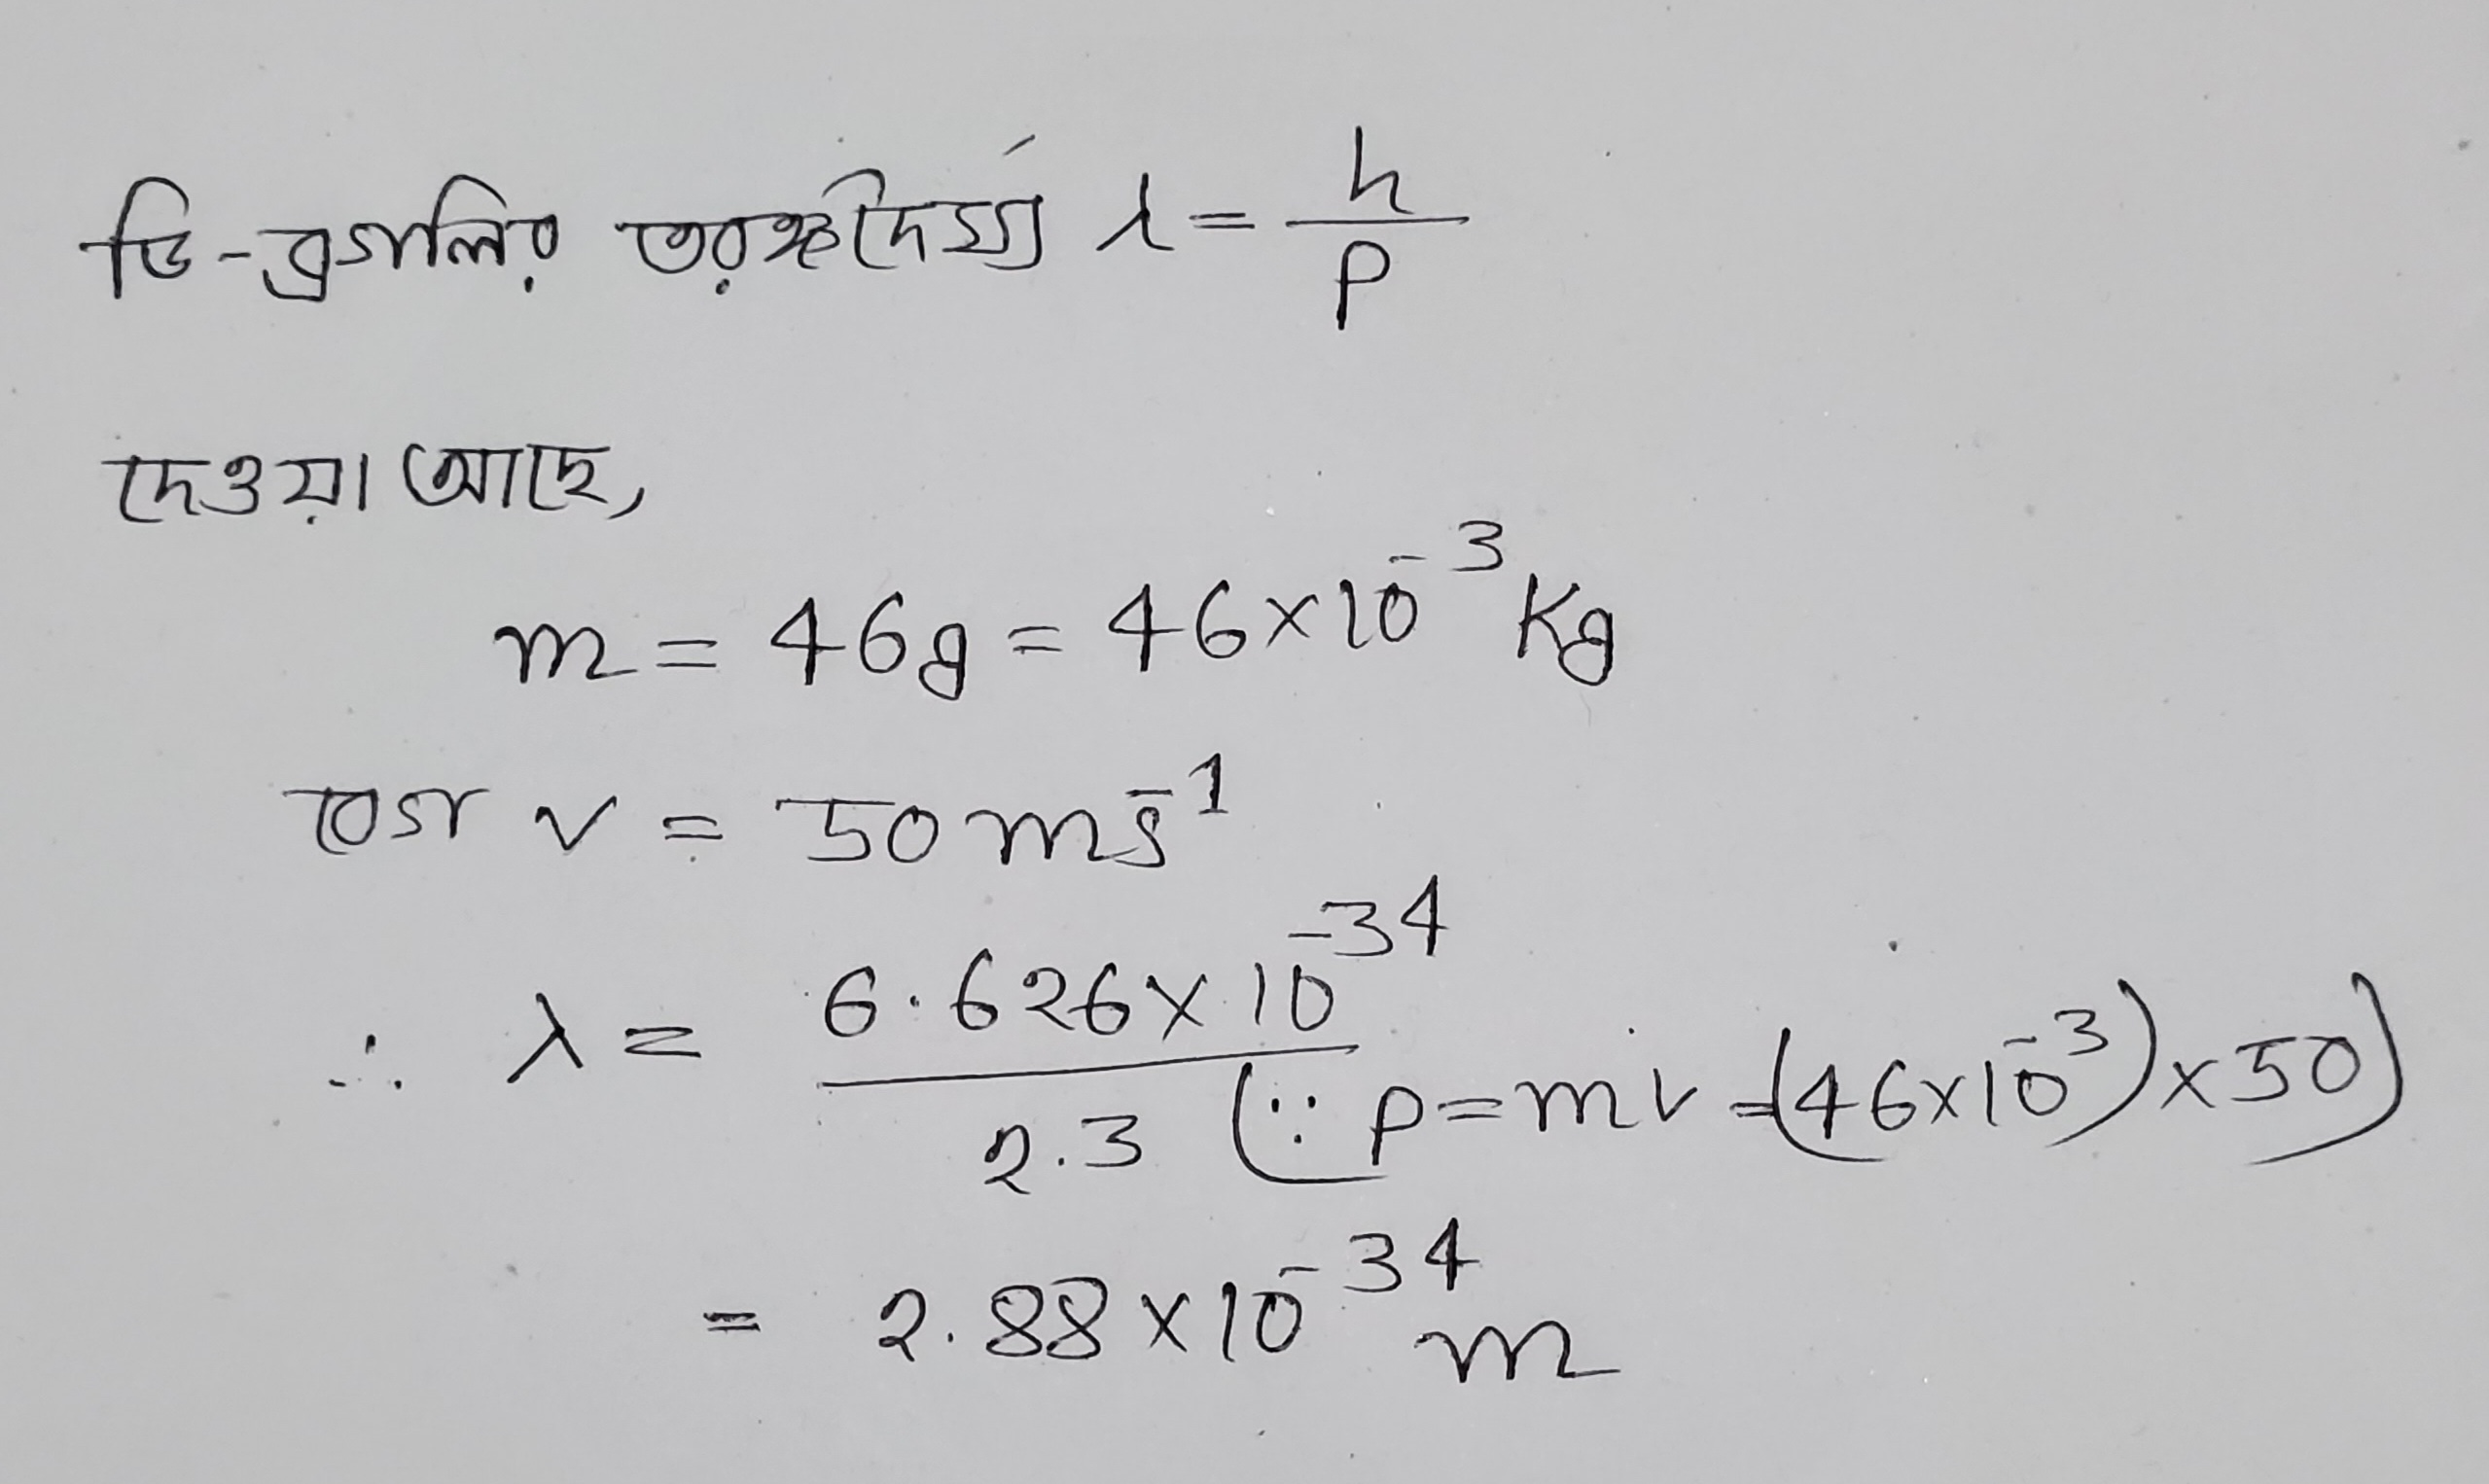 ডি-ব্রগলির তরঙ্গদৈর্ঘ্য λ = h/p
দেওয়া আছে,
m = 46g = 46×10⁻³ Kg
বেগ v = 50 ms⁻¹
∴ λ = 6.626×10⁻³⁴ / 2.3 (∵ p = mv = (46×10⁻³)×50)
= 2.88×10⁻³⁴ m